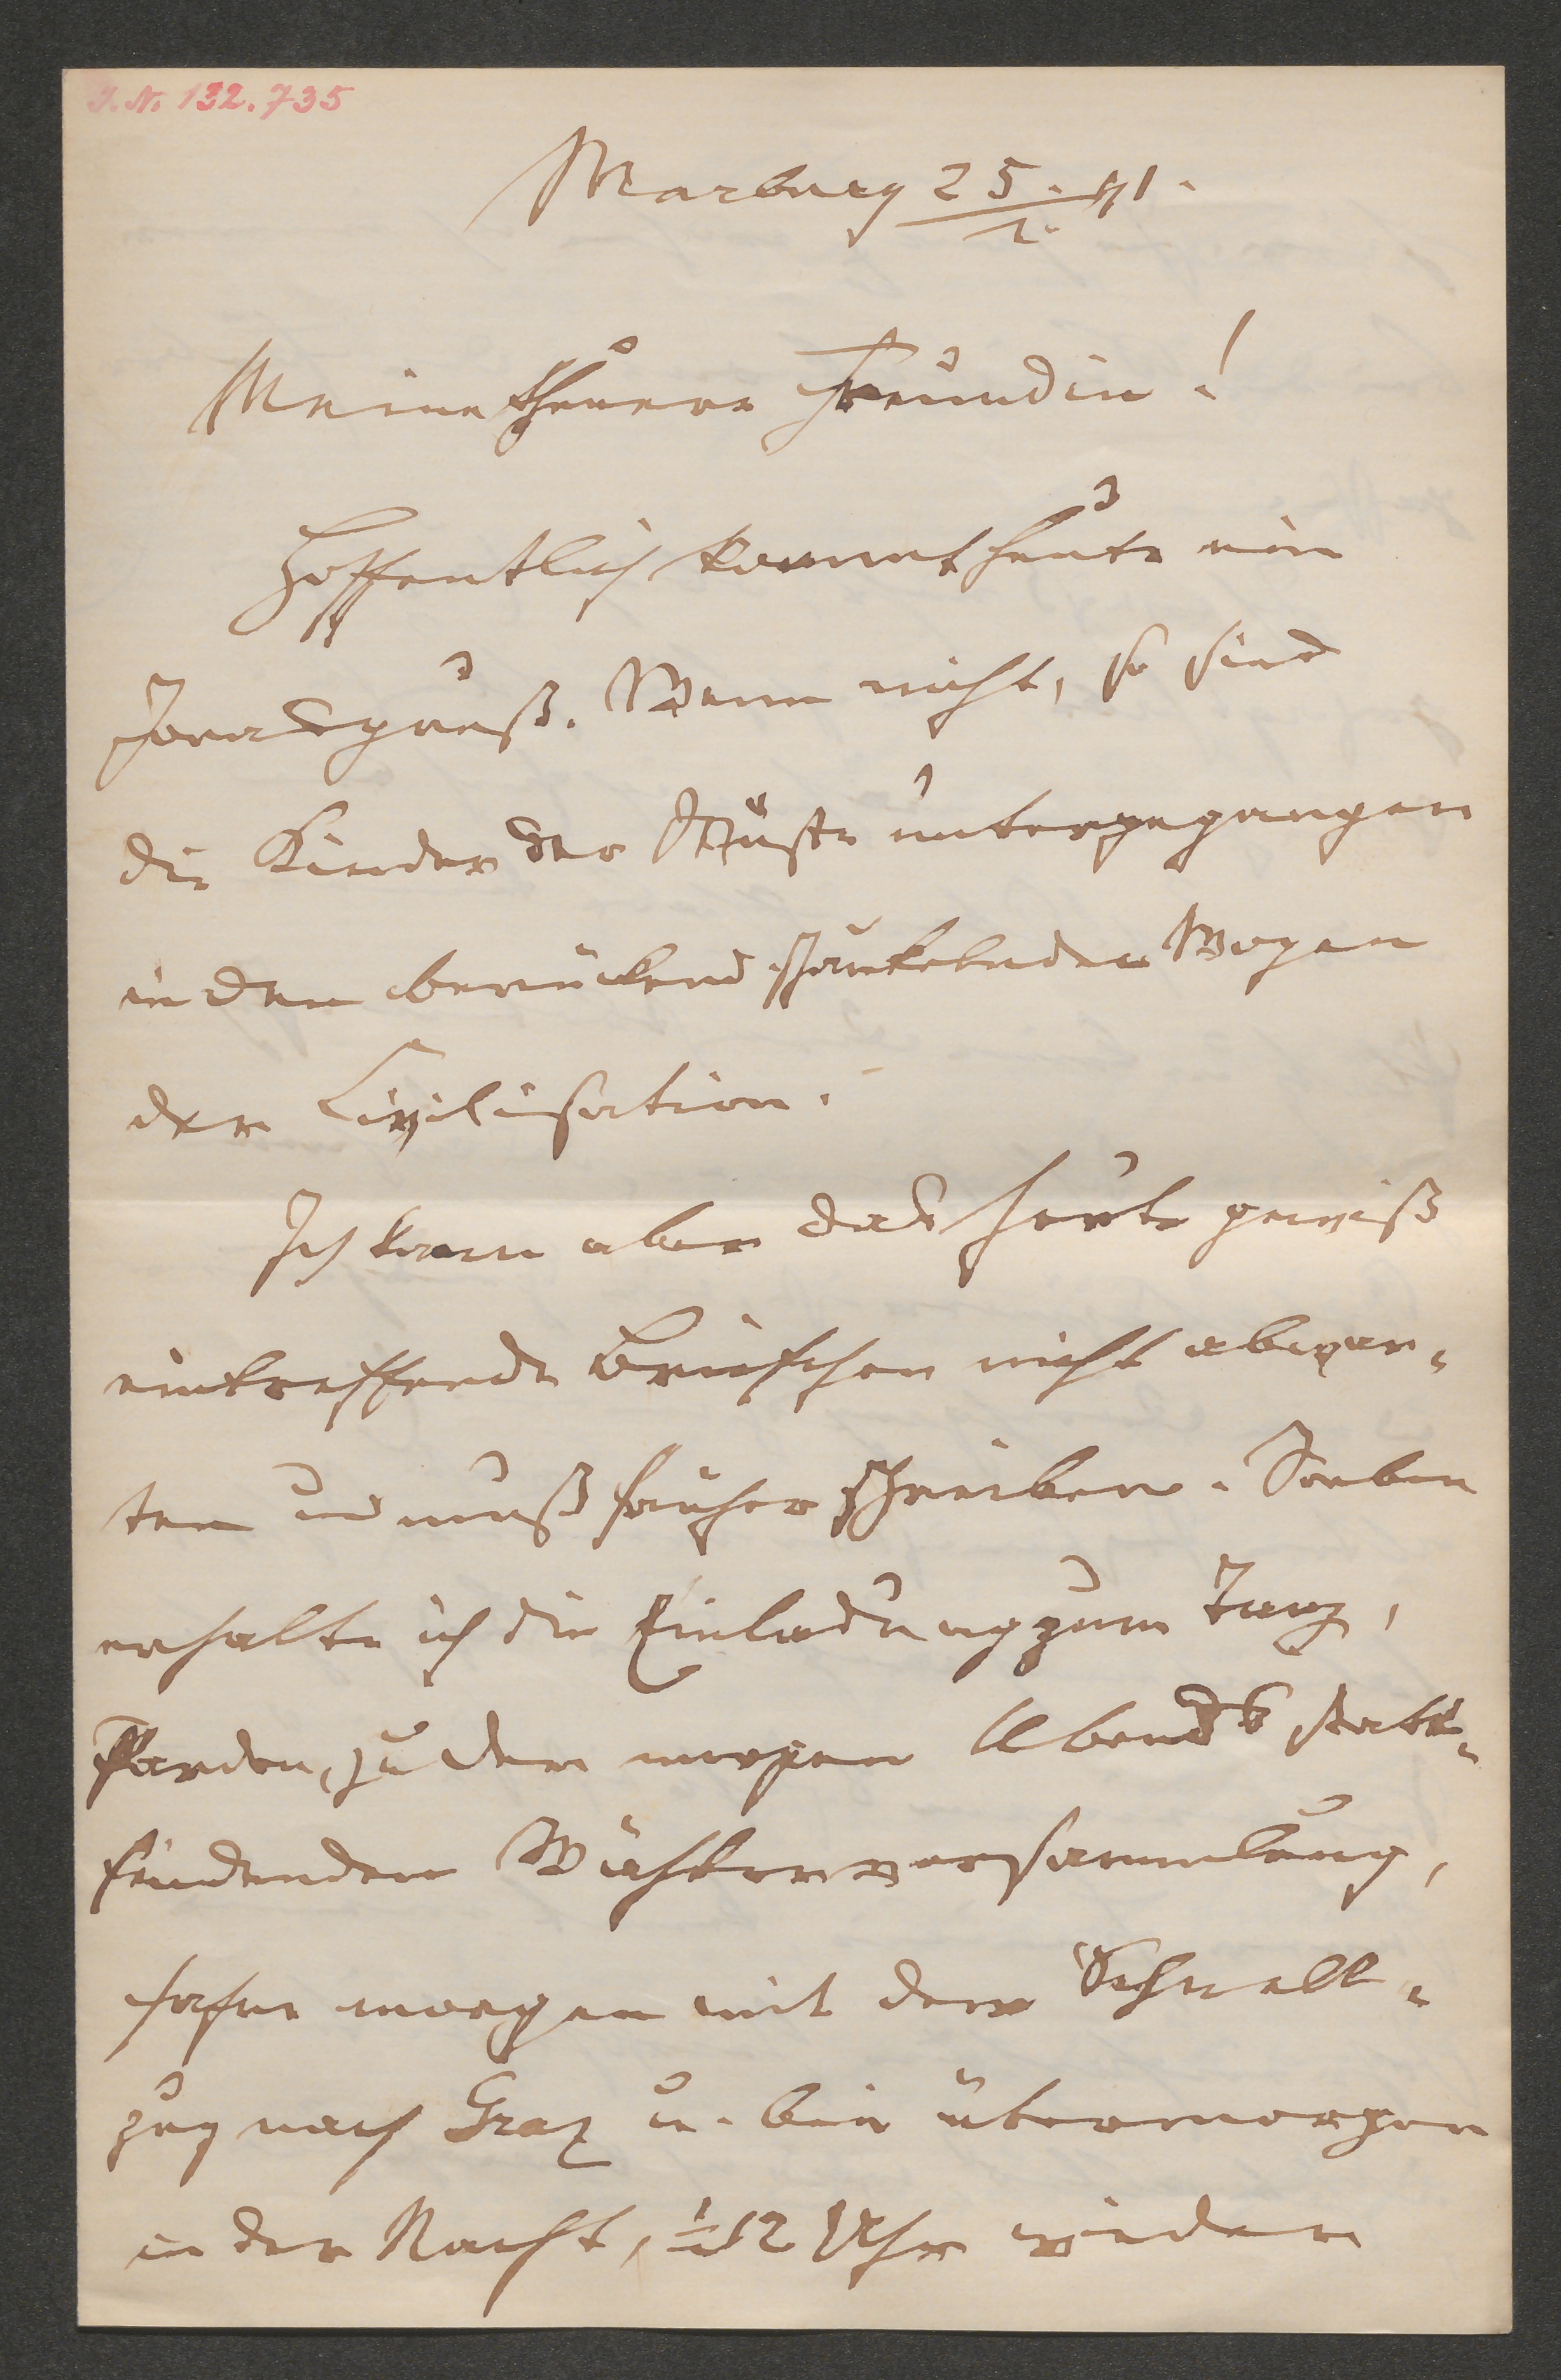 I.N. 132.735
Marburg 25./2. 91.
Meine theuere Freundin!
Hoffentlich kommt heute ein
. Wenn nicht, so sind
die Kinder der Wüste untergegangen
in den berückend schaukelnden Wogen
der Civilisation.
Ich kann aber das heute gewiß
eintreffende Briefchen nicht abwar-
ten und muß früher schreiben. Soeben
erhalte ich die Einladung zum Tanz,
Pardon, zu der morgen Abends statt-
findenden Wählerversammlung,
fahre morgen mit dem Schnell-
zug nach Graz u. bin übermorgen
in der Nacht, ½12 Uhr wieder